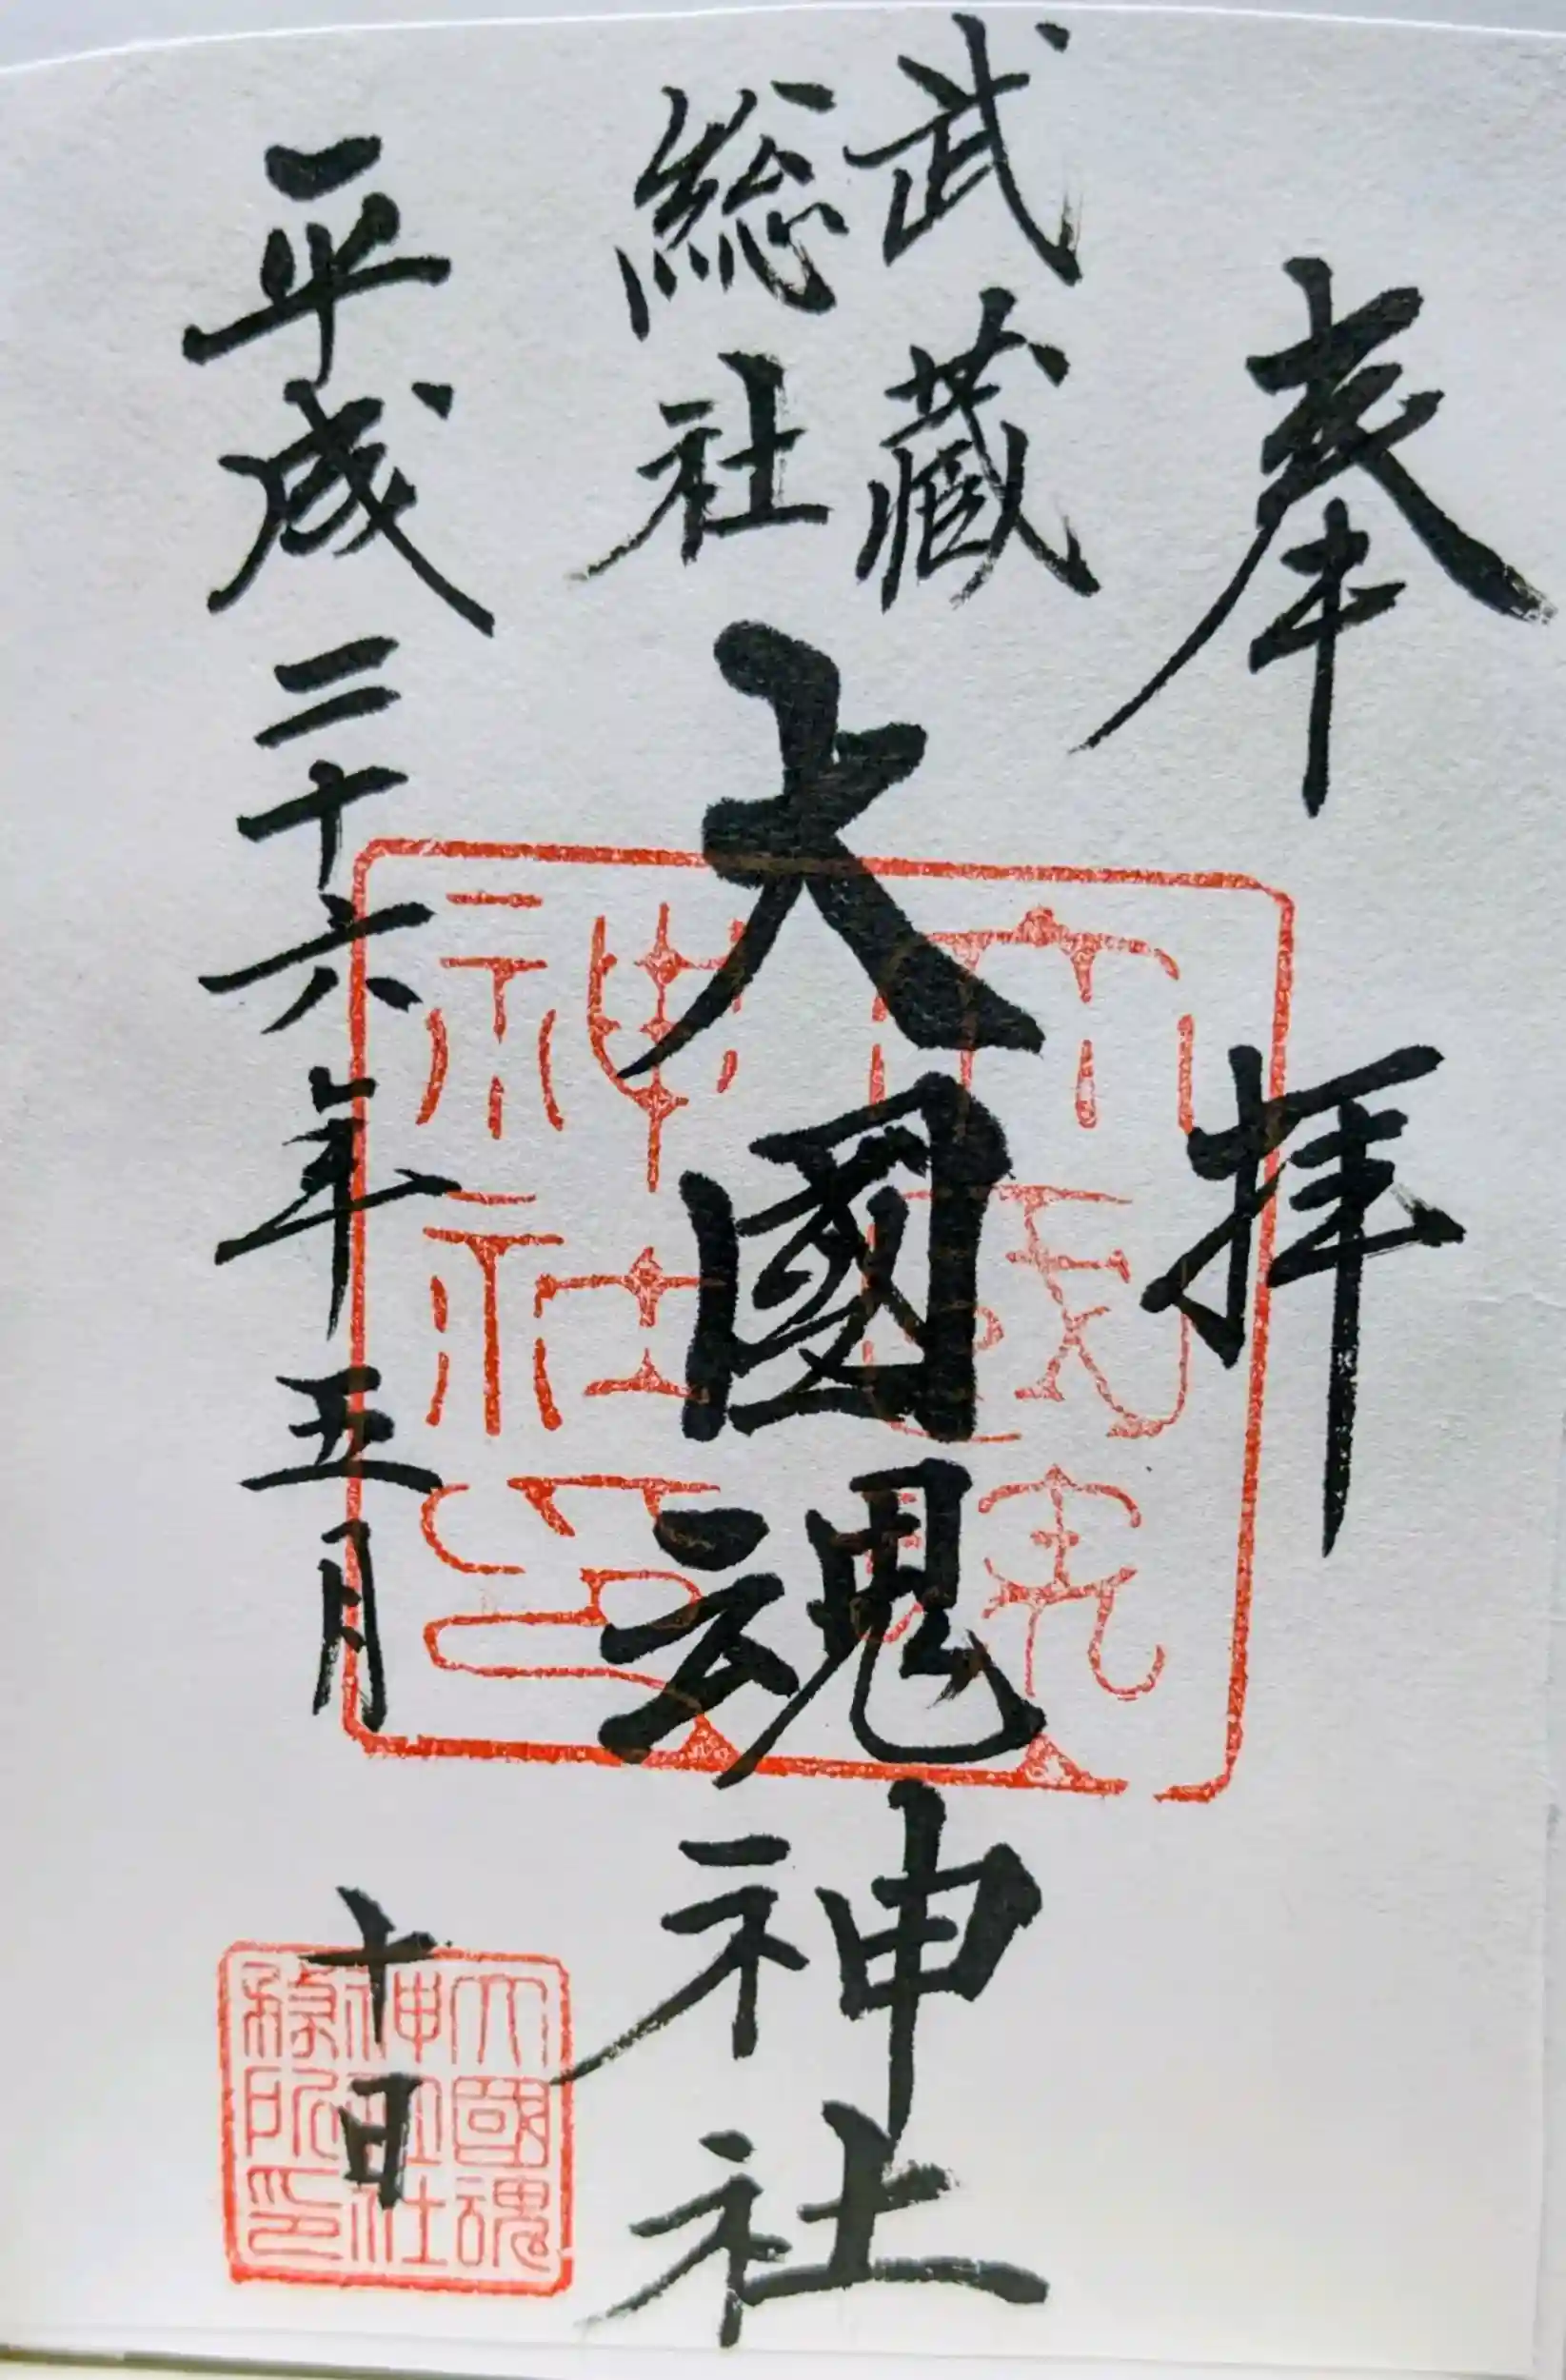 奉拝
武藏
総社
大國魂神社
平成二十六年五月十日
大國魂神社印
大國魂
神社社
務所印